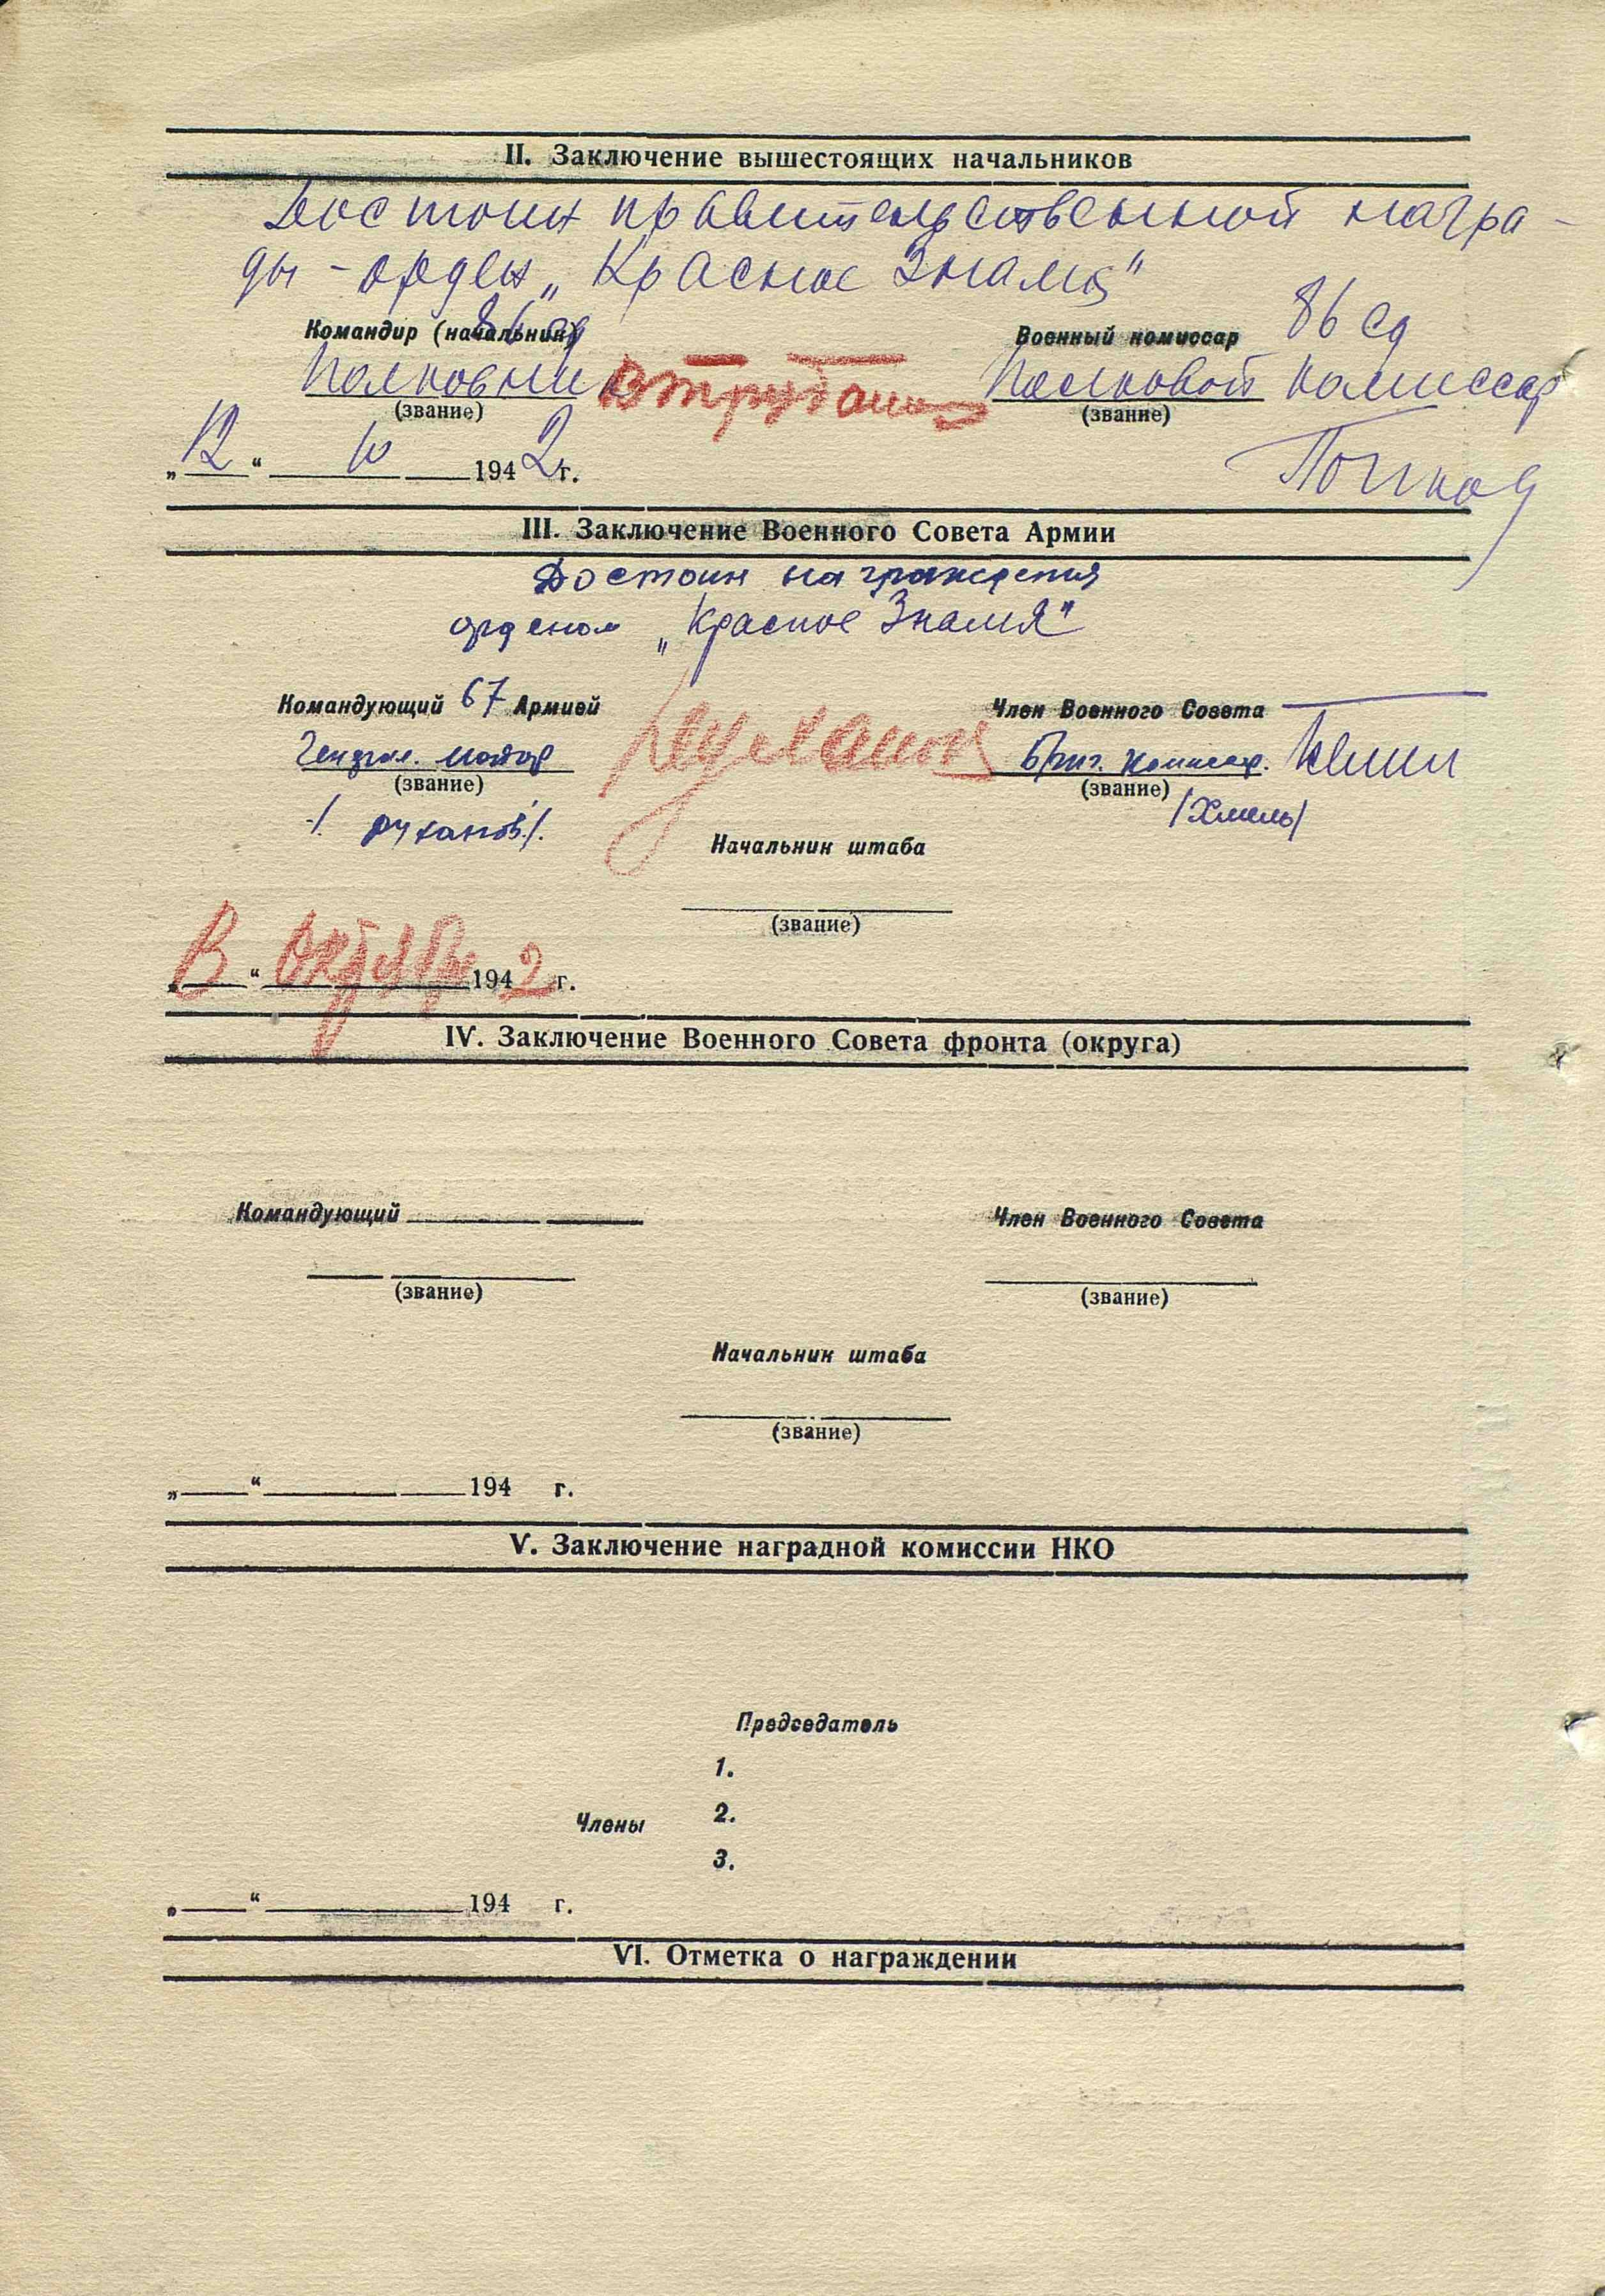 II. Заключение вышестоящих начальников
Достоин правительственной награ-
ды - орден „Красное Знамя"
86 сд
86 сд
Командир (начальник)
Военный комиссар
Полковник
В Трубачев
Полковой комиссар
(звание)
(звание)
„12" 10 1942 г.
III. Заключение Военного Совета Армии
Достоин награждения
орденом „Красное Знамя"
Командующий 67 Армией
Член Военного Совета
Генерал. майор
Бриг. комиссар.
(звание)
(звание)
/Духанов/.
/Хмель/
Начальник штаба
(звание)
„ " Октября 1942 г.
IV. Заключение Военного Совета фронта (округа)
Командующий
Член Военного Совета
(звание)
(звание)
Начальник штаба
(звание)
„ " 194 г.
V. Заключение наградной комиссии НКО
Председатель
1.
Члены 2.
3.
„ " 194 г.
VI. Отметка о награждении